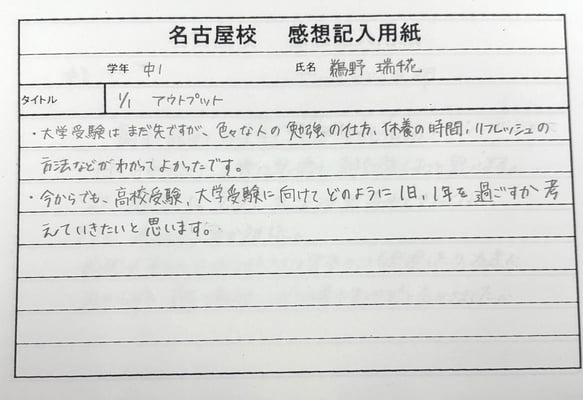 名古屋校 感想記入用紙
学年 中1 氏名 鵜野 瑞花
タイトル 1/1 アウトプット
・大学受験はまだ先ですが、色々な人の勉強の仕方、休養の時間、リフレッシュの
方法などがわかってよかったです。
・今からでも、高校受験、大学受験に向けてどのように1日、1年を過ごすか考
えていきたいと思います。